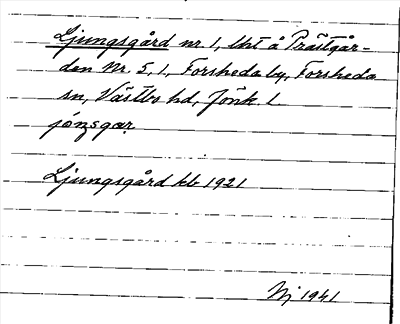 Ljungsgård nr 1, lht å Prästgår-
den Nr. 5, 1, Forsheda by, Forsheda
sn, Västbo hd, Jönk l
jóŋsgar
Ljungsgård kb 1921
Nj 1941